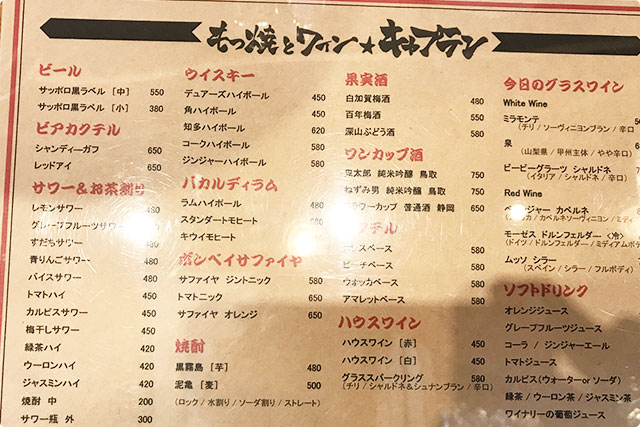 もつ焼とワイン★キャプテン
ビール
サッポロ黒ラベル [中] 550
サッポロ黒ラベル [小] 380
ビアカクテル
シャンディーガフ 650
レッドアイ 650
サワー&お茶割り
レモンサワー 480
グレープフルーツサワー
すだちサワー 480
青りんごサワー 480
バイスサワー 480
トマトハイ 450
カルピスサワー 450
梅干しサワー 450
緑茶ハイ 420
ウーロンハイ 420
ジャスミンハイ 420
焼酎 中 200
サワー瓶 外 300
ウイスキー
デュアーズハイボール 450
角ハイボール 450
知多ハイボール 620
コークハイボール 580
ジンジャーハイボール 580
バカルディラム
ラムハイボール 480
スタンダートモヒート
キウイモヒート
ボンベイサファイヤ
サファイヤ ジントニック 580
トマトニック 650
サファイヤ オレンジ 650
焼酎
黒霧島 [芋] 480
泥亀 [麦] 500
(ロック / 水割り / ソーダ割り / ストレート)
果実酒
白加賀梅酒 480
百年梅酒 550
深山ぶどう酒 580
ワンカップ酒
純米吟醸 鳥取 750
ねずみ男 純米吟醸 鳥取 750
ワーカップ 普通酒 静岡 650
テル
スベース 580
ピーチベース 580
ウォッカベース 580
アマレットベース 580
ハウスワイン
ハウスワイン [赤] 480
ハウスワイン [白] 480
グラススパークリング 580
(チリ / シャルドネ&シュナンブラン / 辛口)
今日のグラスワイン
White Wine
ミラモンテ
(チリ / ソーヴィニヨンブラン / 辛口)
泉
(山梨県 / 甲州主体 / やや辛口)
ビービーグラーツ シャルドネ
(イタリア / シャルドネ / 辛口)
Red Wine
ジャー カベルネ
カ / カベルネソーヴィニヨン / ミデ
モーゼス ドルンフェルダー <冷>
(ドイツ / ドルンフェルダー / ミディアムボ
ムッソ シラー
(スペイン / シラー / フルボディ)
ソフトドリンク
オレンジジュース
グレープフルーツジュース
コーラ / ジンジャーエール
トマトジュース
カルピス(ウォーターor ソーダ)
緑茶 / ウーロン茶 / ジャスミン茶
ワイナリーの葡萄ジュース